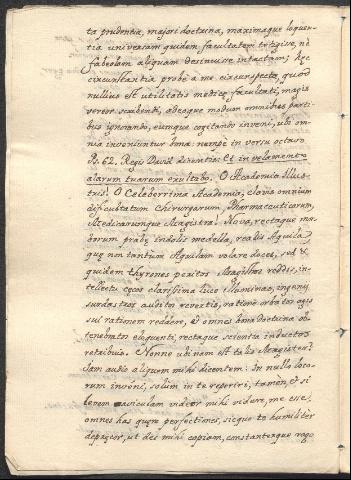 ta prudentia, majori doctrina, maximaque loquen-
tia universam quidem facultatem tetigisse, nè
fabeolam aliquam desinuire intactam; hæc
circunstantia probè à me circunspecta, quod
nullius est utilitatis medicæ facultati, magis
vereor scribenti, adeoque modum omnibus parti-
bus ignorando, eumque cogitando inveni, ubi om-
nia inveniuntur bona: nempe in versu octavo
Ps. 62. Regis David dicentis: Et in velamento
alarum tuarum exultabo. O Academia illus-
tris! O Celeberrima Academia, clavis omnium
difficultatum Chirurgarum, Pharmaceuticarum,
Medicarumque Magistra! Nova, rectaque mo-
dorum indolis medella, readis Aquila,
quæ non tantum Aquilam volare doces, sed &
quidem peritos Magistros reddis, in-
tellectu cæcos clarissima luce illuminas, ingenij
surdastros auditu revertis, ratione orbatos agis
sui rationem reddere, & omnes bona doctrina ob-
tenebratos eloquenti, rectaque scientia inductos
retribuis. Nonne ubinam est talis Magister?
Iam audio aliquem mihi dicentem: In nullo loco-
rum inveni, solum in te reperiri, tamen, & si
levem aviculam videor mihi videre, me esse,
omnes has quæro perfectiones, sicque te humiliter
depreçor, ut des mihi copiam, constanterque rogo